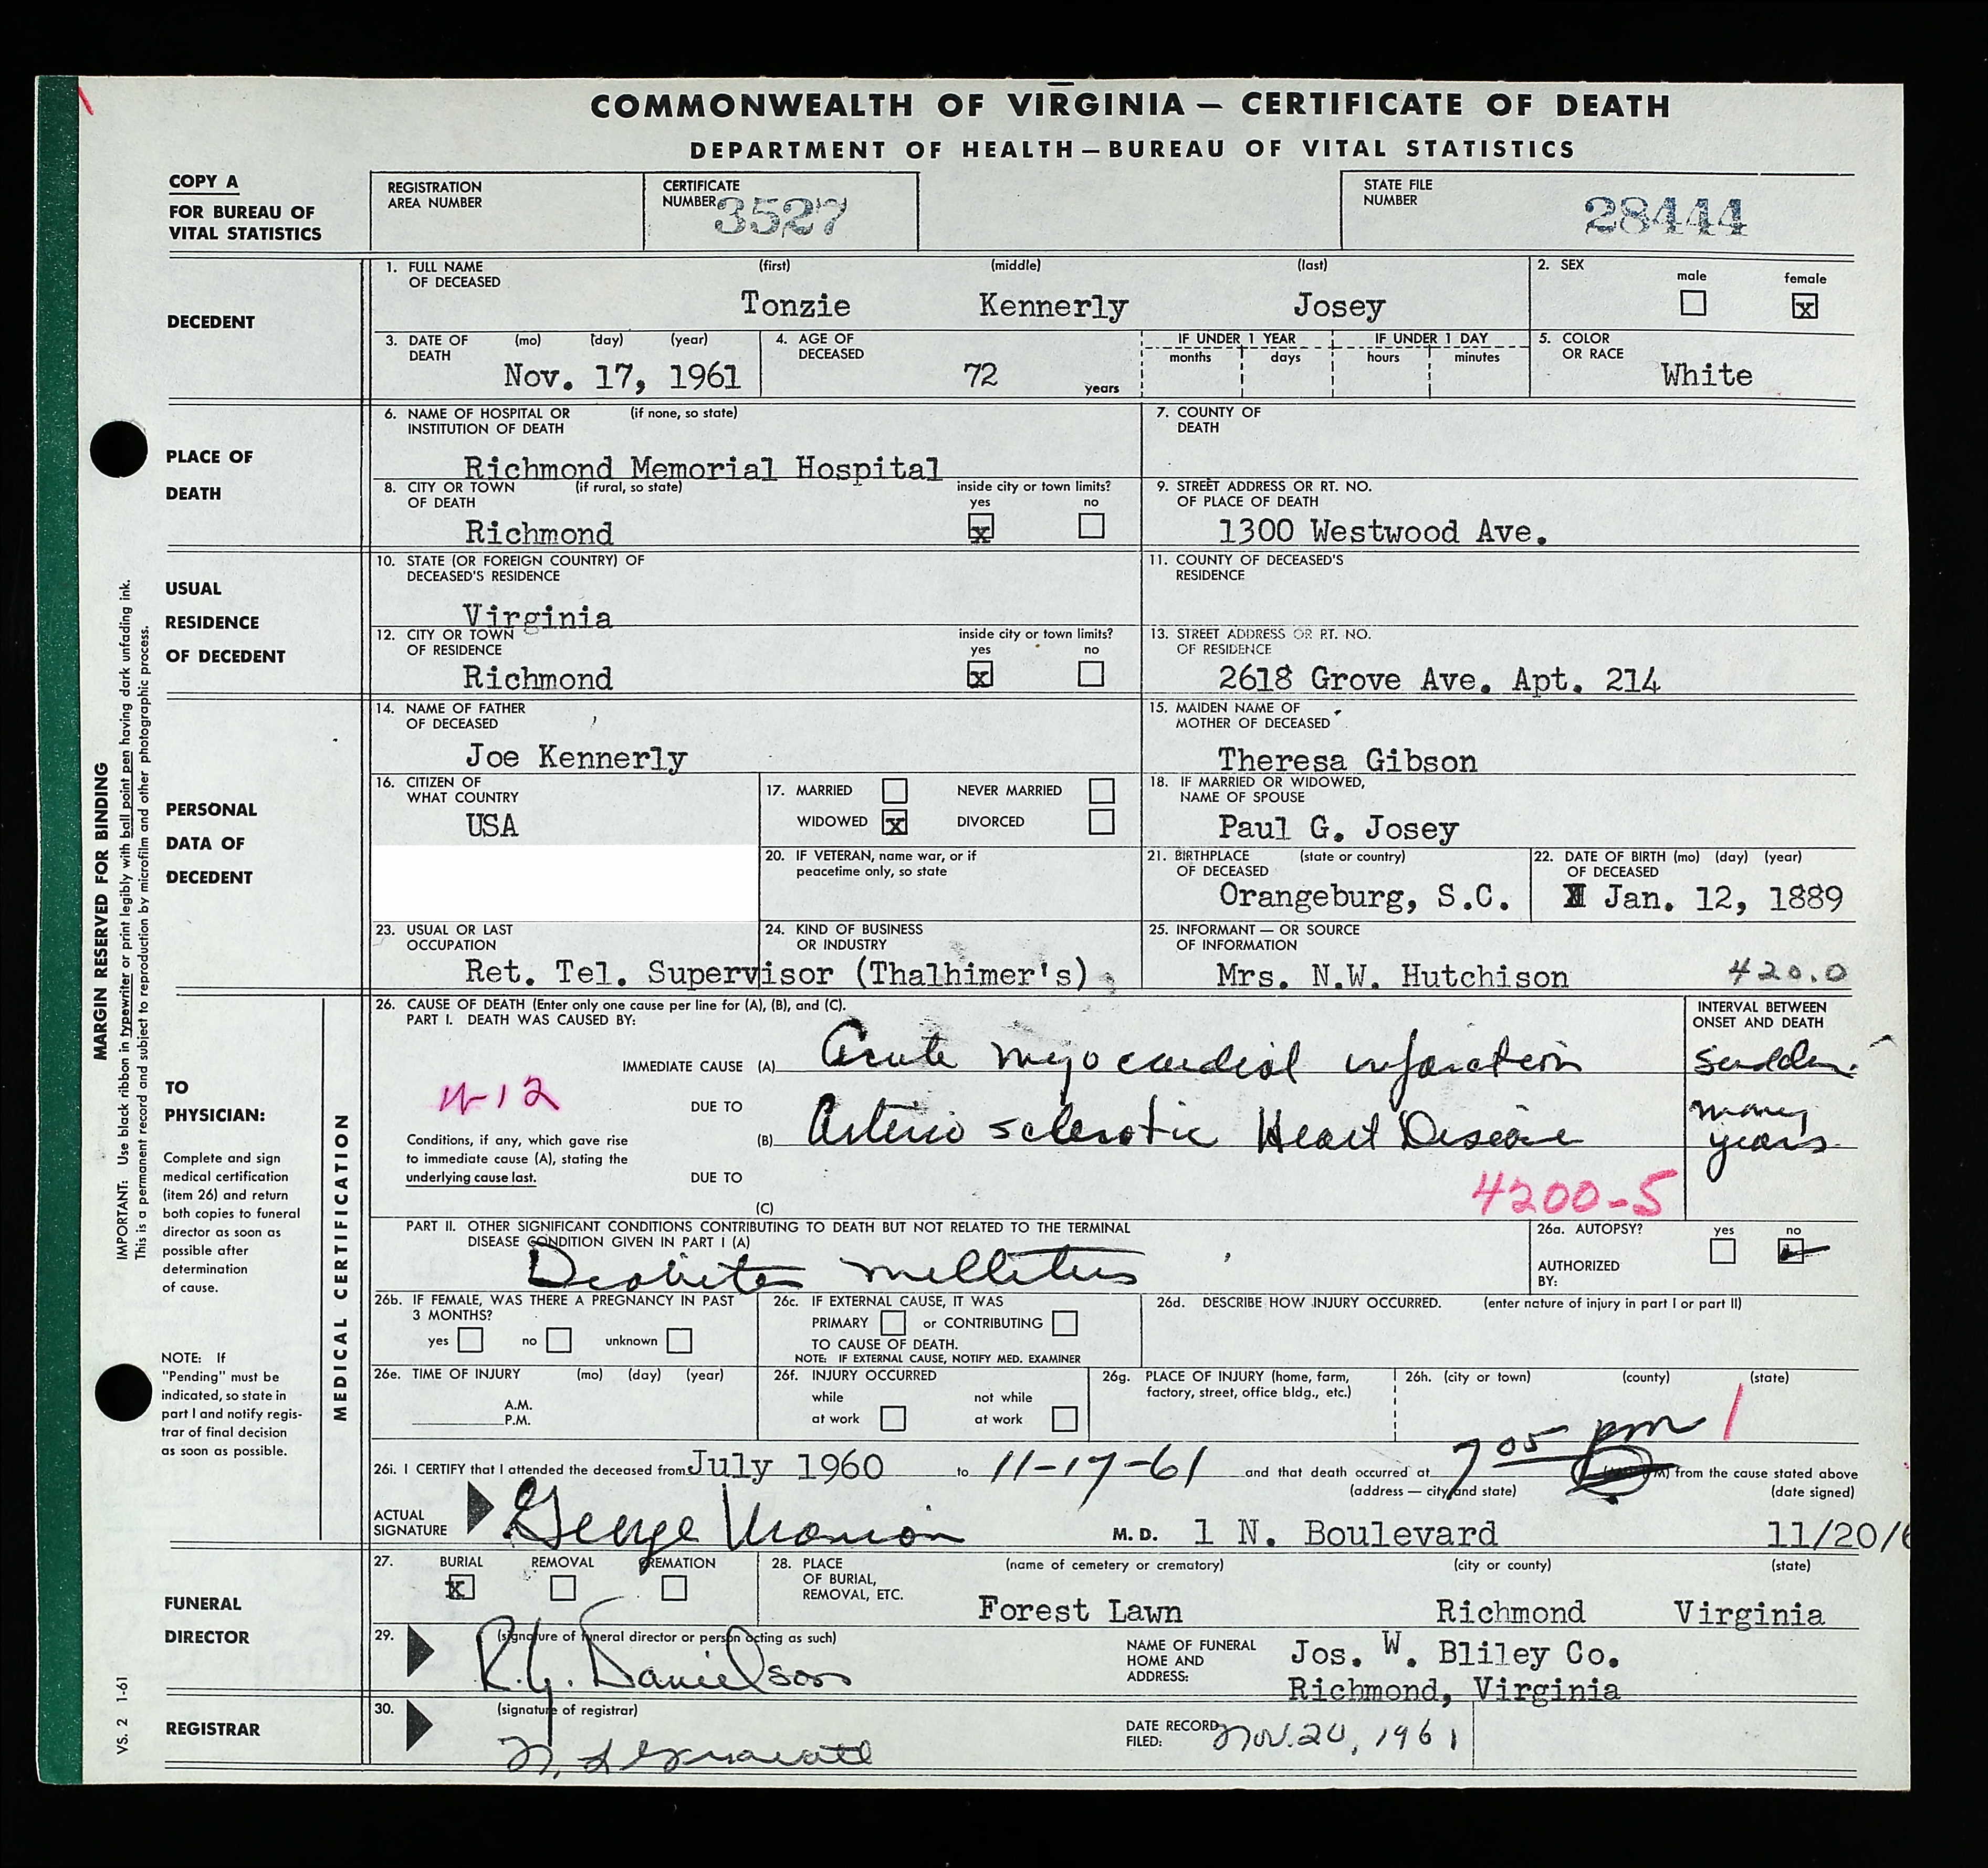 COMMONWEALTH OF VIRGINIA — CERTIFICATE OF DEATH
DEPARTMENT OF HEALTH — BUREAU OF VITAL STATISTICS
COPY A
FOR BUREAU OF
VITAL STATISTICS
REGISTRATION
AREA NUMBER
CERTIFICATE
NUMBER 3527
STATE FILE
NUMBER 28444
DECEDENT
1. FULL NAME OF DECEASED (first) (middle) (last)
Tonzie Kennerly Josey
2. SEX male female
x
3. DATE OF DEATH (mo) (day) (year)
Nov. 17, 1961
4. AGE OF DECEASED
72 years
IF UNDER 1 YEAR
months days
IF UNDER 1 DAY
hours minutes
5. COLOR OR RACE
White
PLACE OF
DEATH
6. NAME OF HOSPITAL OR INSTITUTION OF DEATH (if none, so state)
Richmond Memorial Hospital
7. COUNTY OF DEATH
8. CITY OR TOWN OF DEATH (if rural, so state)
Richmond
inside city or town limits?
yes no
x
9. STREET ADDRESS OR RT. NO. OF PLACE OF DEATH
1300 Westwood Ave.
USUAL
RESIDENCE
OF DECEDENT
10. STATE (OR FOREIGN COUNTRY) OF DECEASED'S RESIDENCE
Virginia
11. COUNTY OF DECEASED'S RESIDENCE
12. CITY OR TOWN OF RESIDENCE
Richmond
inside city or town limits?
yes no
x
13. STREET ADDRESS OR RT. NO. OF RESIDENCE
2618 Grove Ave. Apt. 214
PERSONAL
DATA OF
DECEDENT
14. NAME OF FATHER OF DECEASED
Joe Kennerly
15. MAIDEN NAME OF MOTHER OF DECEASED
Theresa Gibson
16. CITIZEN OF WHAT COUNTRY
USA
17. MARRIED NEVER MARRIED
WIDOWED x DIVORCED
18. IF MARRIED OR WIDOWED, NAME OF SPOUSE
Paul G. Josey
20. IF VETERAN, name war, or if peacetime only, so state
21. BIRTHPLACE OF DECEASED (state or country)
Orangeburg, S.C.
22. DATE OF BIRTH OF DECEASED (mo) (day) (year)
Jan. 12, 1889
23. USUAL OR LAST OCCUPATION
24. KIND OF BUSINESS OR INDUSTRY
Ret. Tel. Supervisor (Thalhimer's)
25. INFORMANT — OR SOURCE OF INFORMATION
Mrs. N.W. Hutchison
420.0
TO
PHYSICIAN:
Complete and sign
medical certification
(item 26) and return
both copies to funeral
director as soon as
possible after
determination
of cause.
NOTE: If
"Pending" must be
indicated, so state in
part I and notify regis-
trar of final decision
as soon as possible.
MEDICAL CERTIFICATION
26. CAUSE OF DEATH (Enter only one cause per line for (A), (B), and (C).
PART I. DEATH WAS CAUSED BY:
INTERVAL BETWEEN
ONSET AND DEATH
IMMEDIATE CAUSE (A) Acute myocardial infarction
sudden
DUE TO
(B) Arterio sclerotic Heart Disease
many
years
Conditions, if any, which gave rise
to immediate cause (A), stating the
underlying cause last.
DUE TO
(C)
4200-5
PART II. OTHER SIGNIFICANT CONDITIONS CONTRIBUTING TO DEATH BUT NOT RELATED TO THE TERMINAL
DISEASE CONDITION GIVEN IN PART I (A)
Diabetes mellitus
26a. AUTOPSY? yes no
AUTHORIZED
BY:
26b. IF FEMALE, WAS THERE A PREGNANCY IN PAST
3 MONTHS?
yes no unknown
26c. IF EXTERNAL CAUSE, IT WAS
PRIMARY or CONTRIBUTING
TO CAUSE OF DEATH.
NOTE: IF EXTERNAL CAUSE, NOTIFY MED. EXAMINER
26d. DESCRIBE HOW INJURY OCCURRED. (enter nature of injury in part I or part II)
26e. TIME OF INJURY (mo) (day) (year)
A.M.
P.M.
26f. INJURY OCCURRED
while at work
not while at work
26g. PLACE OF INJURY (home, farm,
factory, street, office bldg., etc.)
26h. (city or town) (county) (state)
26i. I CERTIFY that I attended the deceased from July 1960 to 11-17-61 and that death occurred at 7 05 pm from the cause stated above
(address — city and state) (date signed)
ACTUAL
SIGNATURE
George
M. D. 1 N. Boulevard 11/20/6
FUNERAL
DIRECTOR
27. BURIAL REMOVAL CREMATION
x
28. PLACE
OF BURIAL,
REMOVAL, ETC.
(name of cemetery or crematory) (city or county) (state)
Forest Lawn Richmond Virginia
29. (signature of funeral director or person acting as such)
R.G. Danielson
NAME OF FUNERAL
HOME AND
ADDRESS:
Jos. W. Bliley Co.
Richmond, Virginia
REGISTRAR
30. (signature of registrar)
DATE RECORD
FILED: Nov. 20, 1961
MARGIN RESERVED FOR BINDING
IMPORTANT: Use black ribbon in typewriter or print legibly with ball point pen having dark unfading ink.
This is a permanent record and subject to reproduction by microfilm and other photographic process.
VS. 2 1-61